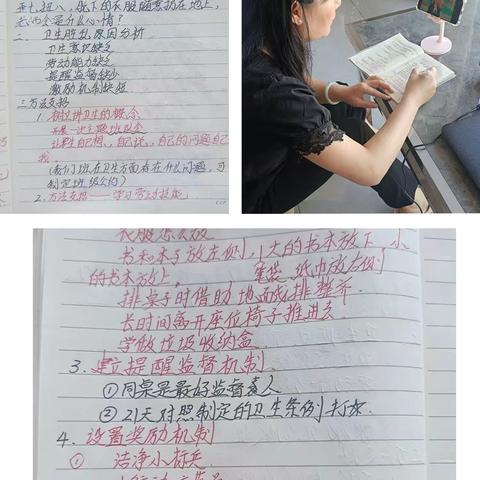 歪七扭八,脱下的衣服随意扔在地上,
二、卫生脏乱原因分析
卫生意识缺乏
劳动能力缺乏
提醒监督缺少
激励机制缺短
三、方法支招
1. 树立讲卫生的概念
开展一次主题班队会
让学生自己想,自己说,自己的问题自己
找
(我们班在卫生方面存在什么问题,可
制定班级公约)
2. 方法支招——学习劳动技能
衣服怎么放
书和本子放左侧,大的书本放下,小
的书本放上, 纸巾放右侧
排桌子时借助地面线排整齐
长时间离开座位椅子推进去
学做垃圾收纳盒
3. 建立提醒监督机制
① 同桌是最好监督责人
② 21天对照制定的卫生条例打放.
4. 设置奖励机制
① 洁净小标兵